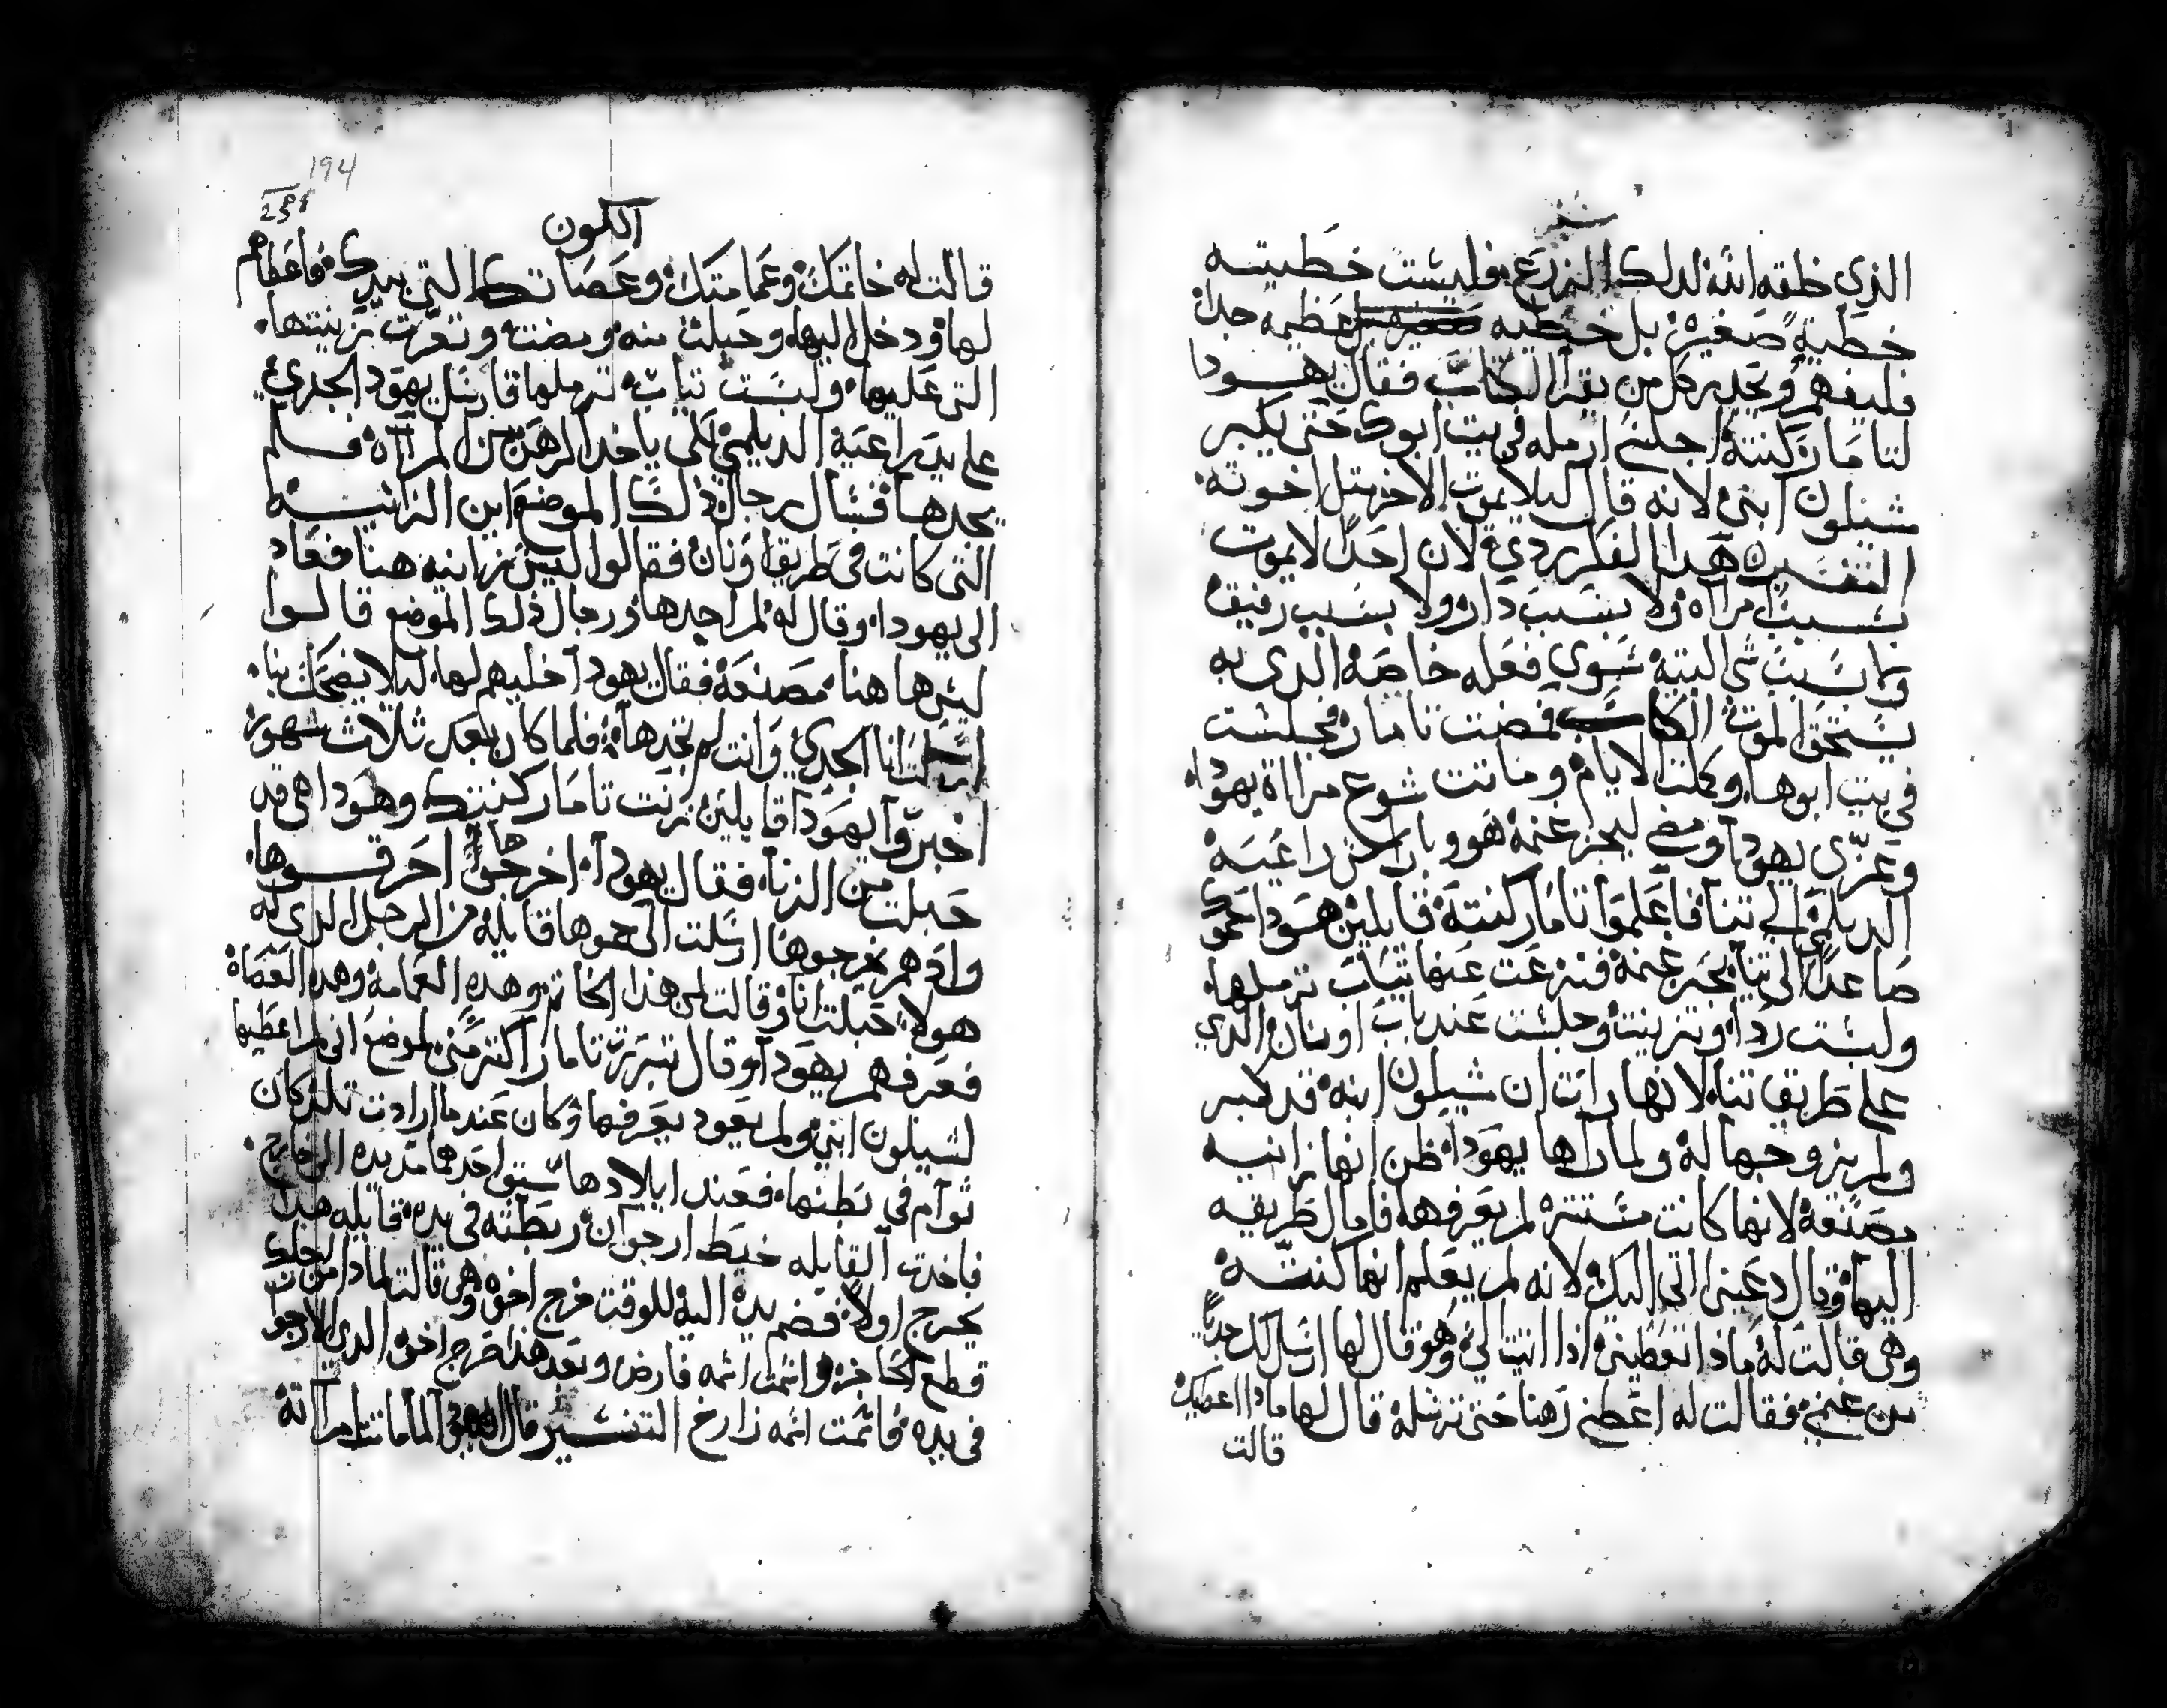 سفر
الذي خلقه الله لدلك الزرع فليست خطيته
خطية صغيرة بل خطيه عظيمه جدا
فليفهم وتحدر كل من يقرا الكتاب فقال يهودا
لتامار كنته اجلسي ارمله في بيت ابوك حتى يكبر
شيلون ابني لانه قال ليلا يموت الاخر مثل اخوته
التفسير هدا الفكر ردي لان احدا لا يموت
بسبب مراه ولا بسبب دار ولا بسبب رفيق
ولا بسبب شي البتة سوي فعله خاصة الذي به
يستحق الموت الكتاب فمضت تامار فجلست
في بيت ابوها وكملت الايام وماتت شوع مراة يهودا
وعزي يهودا ومضي ليجز غنمه هو و راعيه
الديلمي الي تنا فاعلموا تامار كنته قايلين هودا حموك
صاعدا الى تنا يجز غنمه فنزعت عنها تياب ترملها
ولبست ردا وتزينت وجلست عند باب اونان الذي
على طريق تنا لانها رات ان شيلون ابنه قد كبر
ولم يزوجها له ولما راها يهودا ظن انها زانيه
مصنعة لانها كانت مستتره لم يعرفها فامال طريقه
اليها وقال دعيني اتي اليك لانه لم يعلم انها كنته
وهي قالت له ماذا تعطيني اذا اتيت الي وهو قال لها ارسل لك جديا
من غنمي فقالت له اعطني رهنا حتى ترسله قال لها مادا اعطيك
قالت
194
الكون
قالت له خاتمك وعمامتك وعصاتك التي بيدك فاعطاهم
لها ودخل اليها وحبلت منه ومضت وتعرت زينتها
التي عليها ولبست تياب ترملها فارسل يهودا الجدي
على يد راعيه الديلمي لكي ياخد الرهن من المراه فلم
يجدها فسال رجال ذلك الموضع اين الزانيه
التي كانت في طريق اونان فقالوا ليس زانيه هنا فعاد
الى يهودا وقال له لم اجدها ورجال ذلك الموضع قالوا
ليس هاهنا مصنعة فقال يهودا خليهم لها ليلا يضحك بنا
ارسلت انا الجدي وانت لم تجدها فلما كان بعد ثلاث شهور
اخبروا يهودا قايلين زنت تامار كنتك وهودا هي قد
حبلت من الزنا فقال يهودا اخرجوها احرقوها
واذ هم يخرجوها ارسلت الى حموها قايله من الرجل الدي له
هولا حبلت انا وقالت لمن هذا الخاتم وهده العمامة وهده العصاة
فعرفهم يهودا وقال تبررت تامار اكتر مني لموضع اني لم اعطيها
لشيلون ابني ولم يعود يعرفها وكان عندما ارادت تلد كان
توآم في بطنها فعند ايلادها سبق احدهما مد يده الى خارج
فاخدت القابله خيط ارجوان ربطته في يده قايله هدا
يخرج اولا فضم يده اليه للوقت خرج اخوه وهي قالت لمادا من اجلك
قطع الحاجز واسمت اسمه فارص وبعد هذا خرج اخوه الدي الارجوان
في يده فاسمت اسمه زارخ التفسير قال لما ماتت امراته